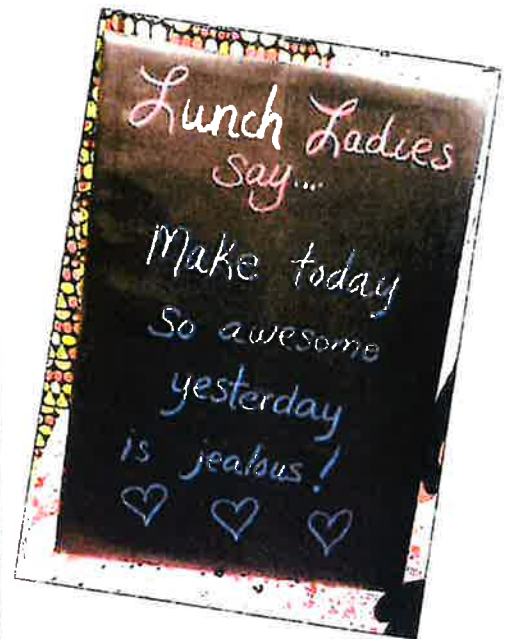 Lunch Ladies
say...
Make today
so awesome
yesterday
is jealous!